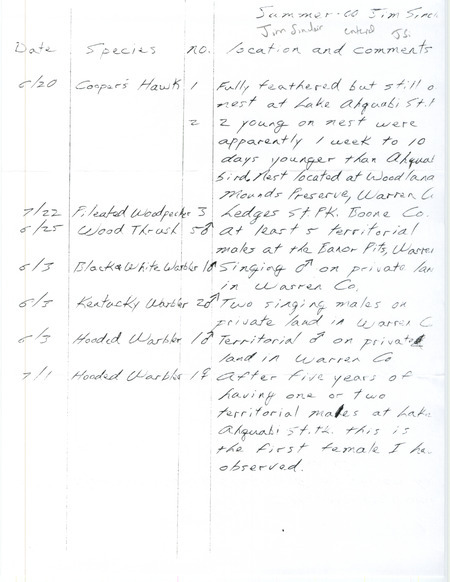 Summer-00 Jim Sinc
Jim Sinclair entered JS.
Date Species no. location and comments
6/20 Cooper's Hawk 1 Fully feathered but still o
nest at Lake Ahquabi St.P
2 2 young on nest were
apparently 1 week to 10
days younger than Ahquab
bird. Nest located at Woodland
Mounds Preserve, Warren C
7/22 Pileated Woodpecker 3 Ledges St Pk. Boone Co.
6/25 Wood Thrush 5♂ at least 5 territorial
males at the Banor Pits, Warren
6/3 Black & White Warbler 1♂ Singing ♂ on private lan
in Warren Co.
6/3 Kentucky Warbler 2♂ Two singing males on
private land in Warren C
6/3 Hooded Warbler 1♂ Territorial ♂ on private
land in Warren Co
7/1 Hooded Warbler 1♀ After five years of
having one or two
territorial males at Lake
Ahquabi St.Pk. this is
the first female I ha
observed.